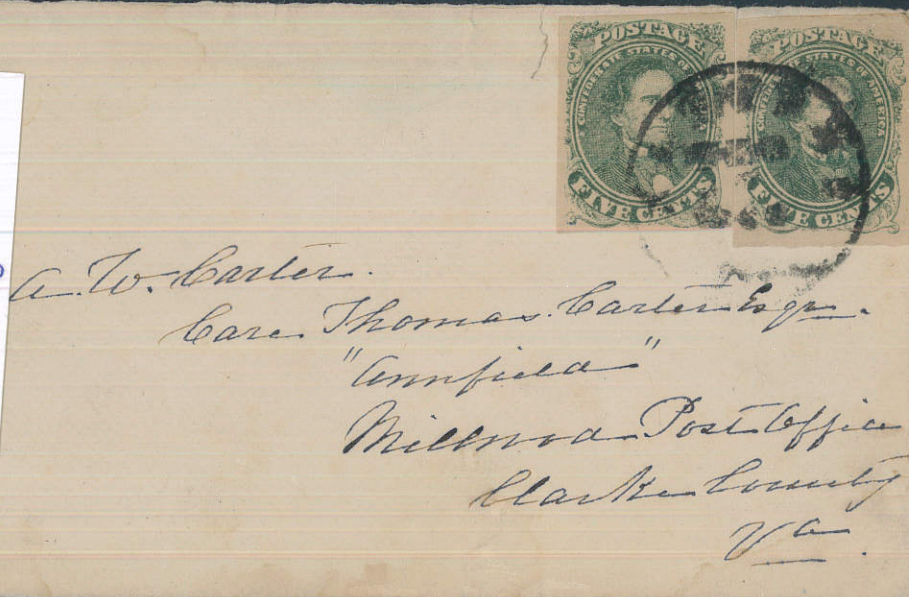 POSTAGE
CONFEDERATE STATES OF AMERICA
FIVE CENTS
POSTAGE
CONFEDERATE STATES OF AMERICA
FIVE CENTS
A. W. Carter.
Care Thomas. Carter Esqr.
"Annfield"
Millwood Post Office
Clarke County
Va.